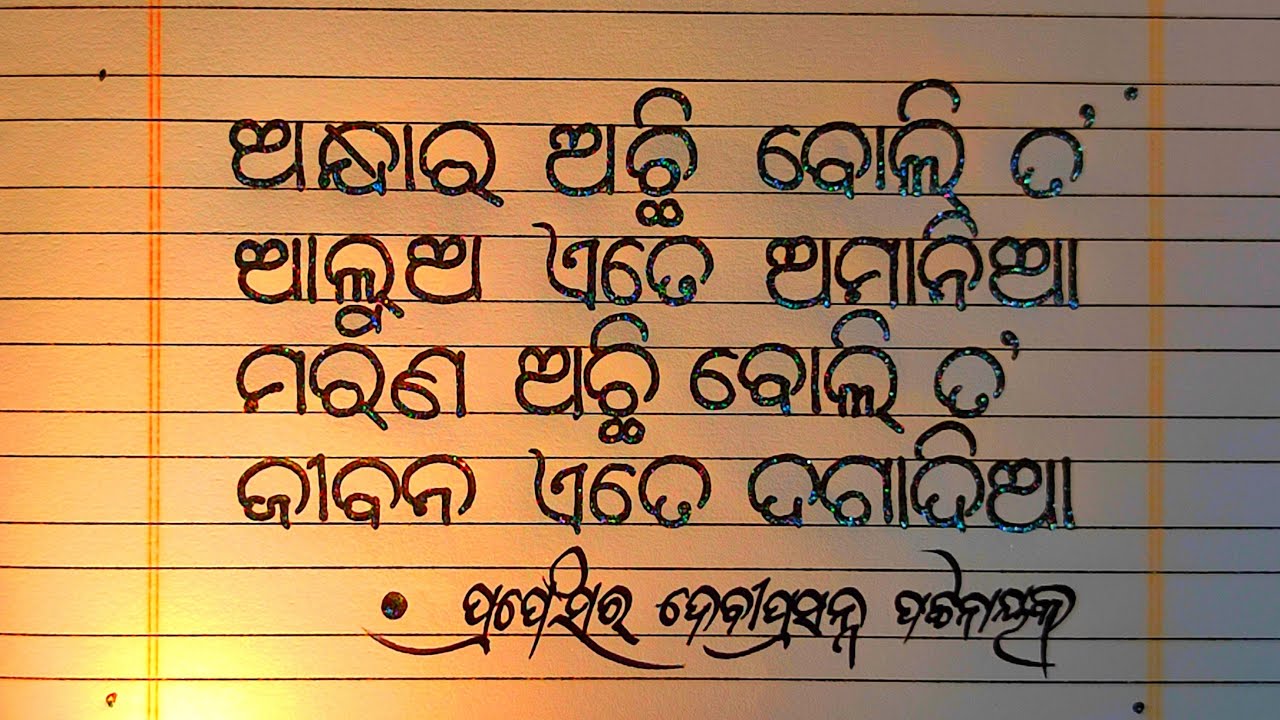 ଅନ୍ଧାର ଅଛି ବୋଲି ତ'
ଆଲୁଅ ଏତେ ଅମାନିଆ
ମରଣ ଅଛି ବୋଲି ତ'
ଜୀବନ ଏତେ ଦଗାଦିଆ
• ପ୍ରଫେସର ଦେବୀପ୍ରସନ୍ନ ପଟ୍ଟନାୟକ